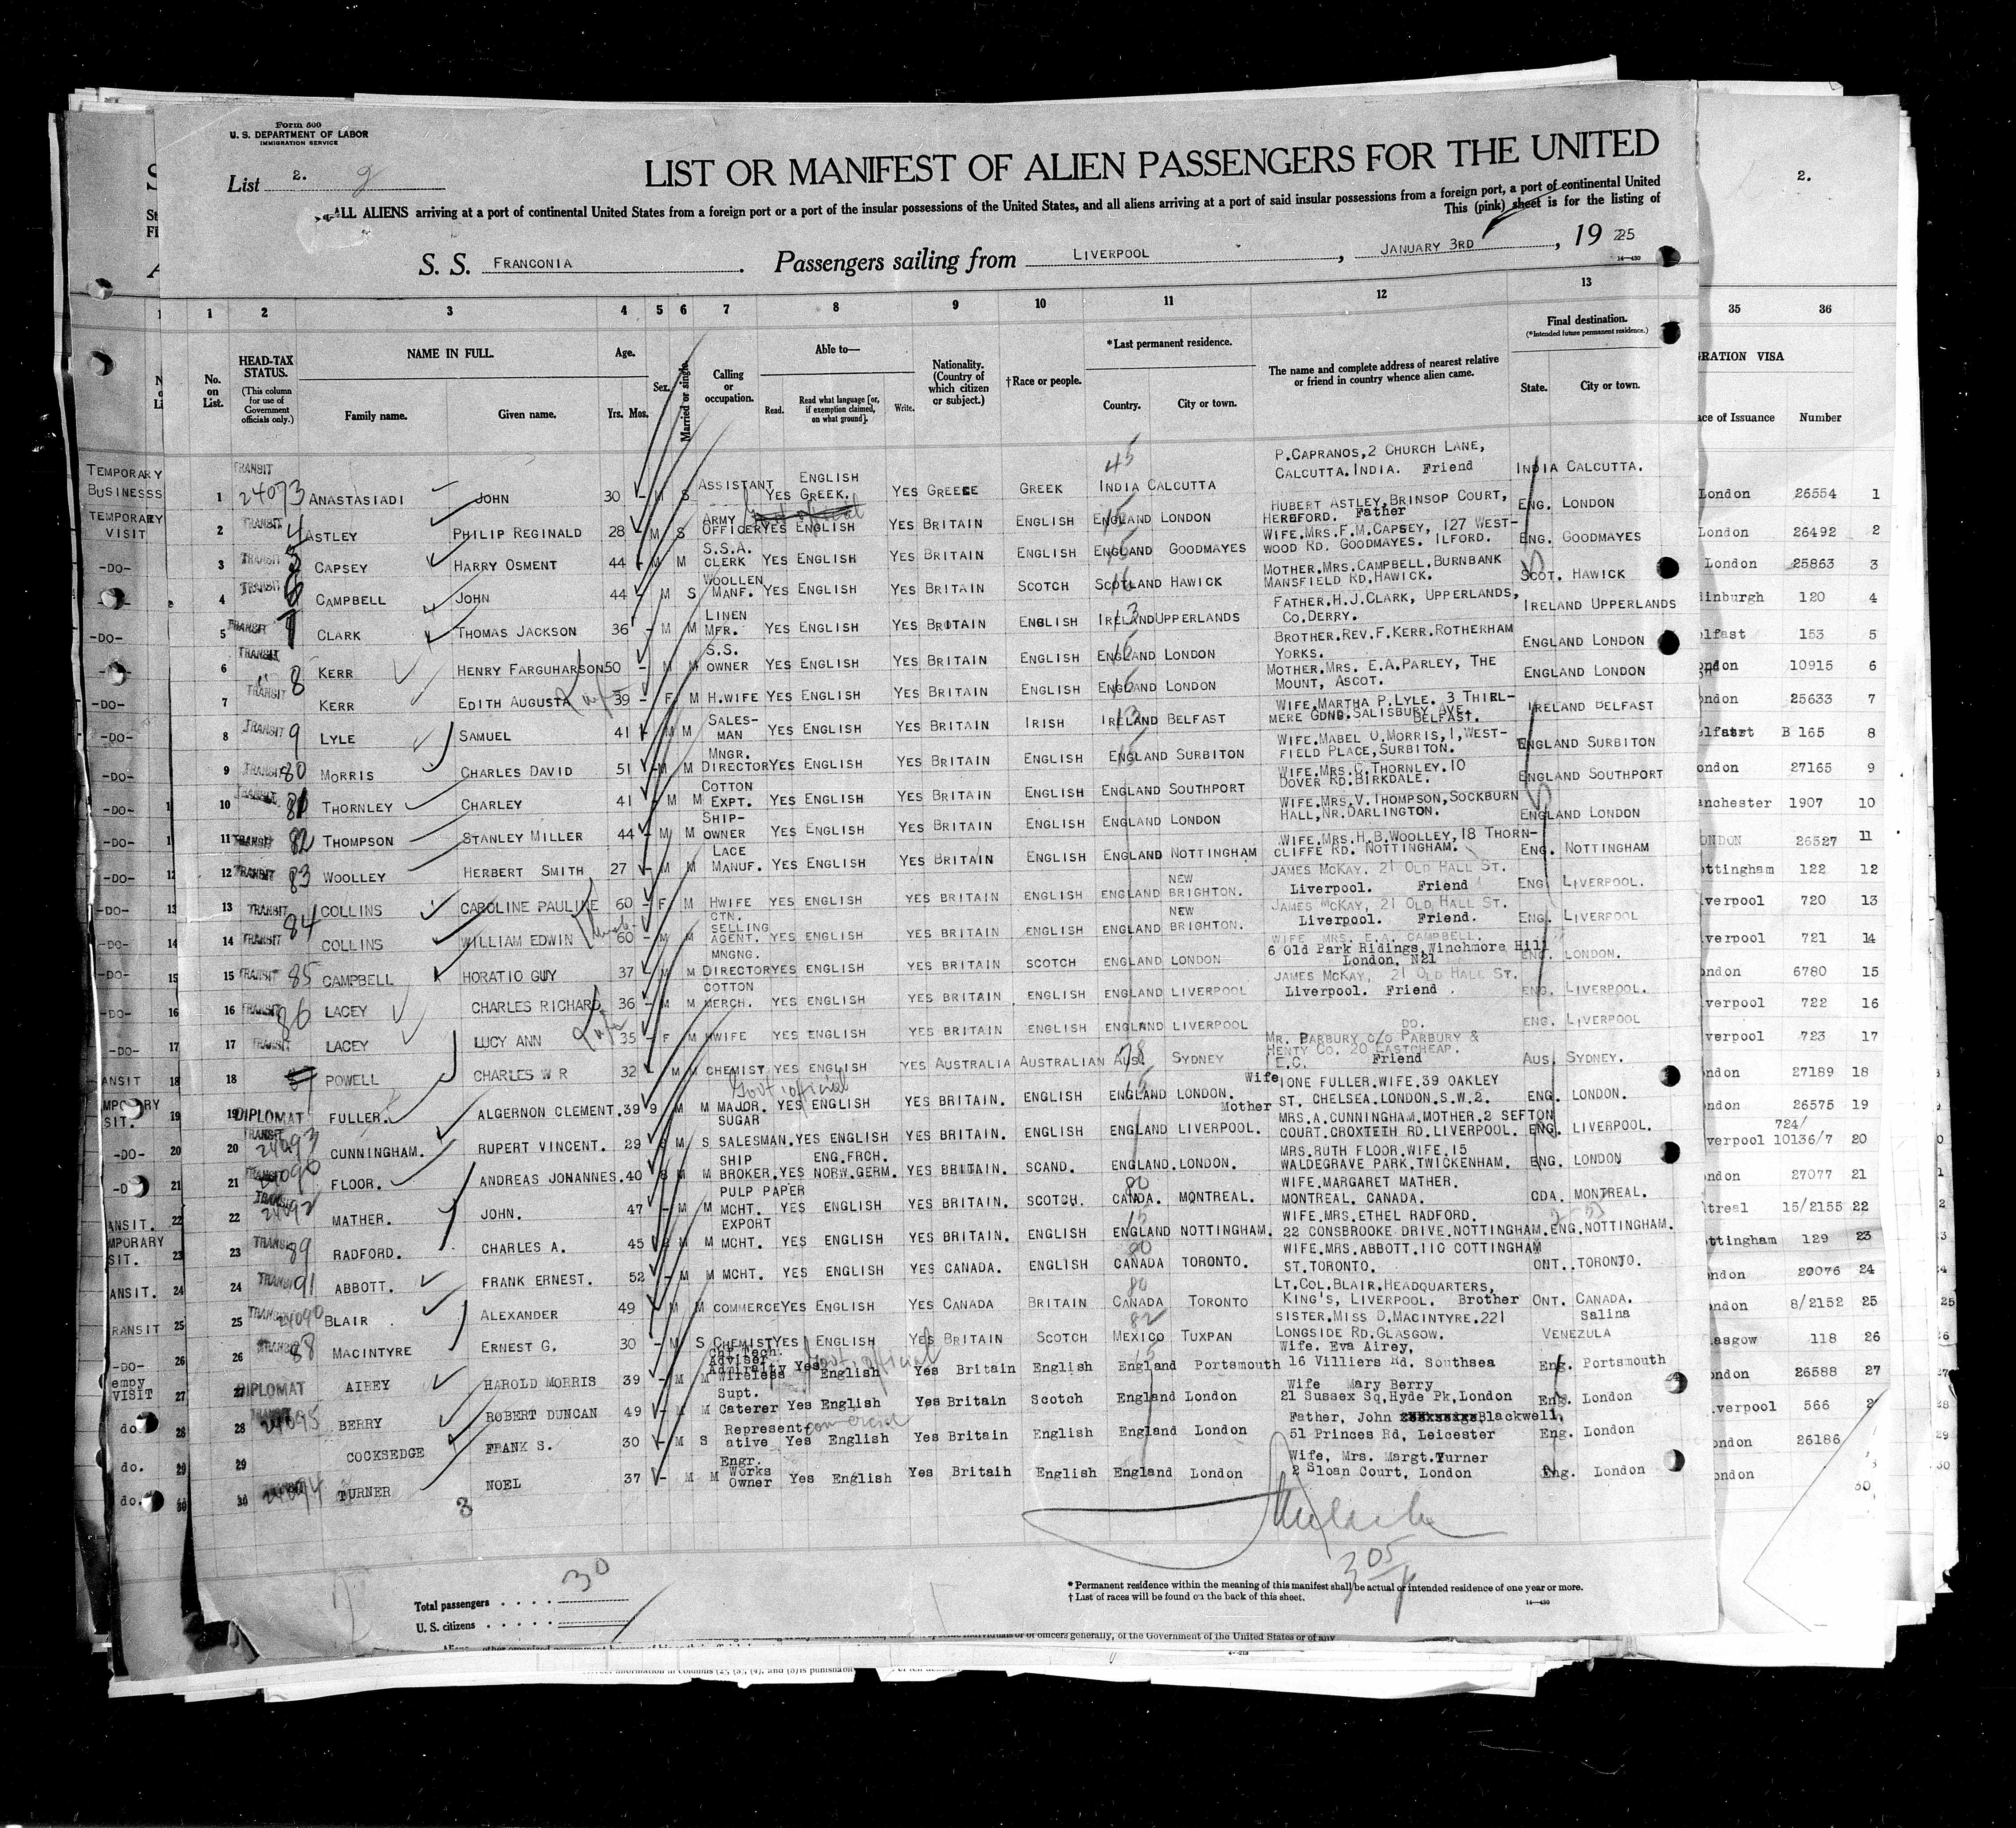 Form 500
U. S. DEPARTMENT OF LABOR
IMMIGRATION SERVICE
List 2. 2
LIST OR MANIFEST OF ALIEN PASSENGERS FOR THE UNITED
ALL ALIENS arriving at a port of continental United States from a foreign port or a port of the insular possessions of the United States, and all aliens arriving at a port of said insular possessions from a foreign port, a port of continental United
This (pink) sheet is for the listing of
S. S. FRANCONIA . Passengers sailing from LIVERPOOL , JANUARY 3RD , 19 25
14—430
1 2 3 4 5 6 7 8 9 10 11 12 13 35 36
No. on List. HEAD-TAX STATUS. (This column for use of Government officials only.) NAME IN FULL. Family name. Given name. Age. Yrs. Mos. Sex. Married or single. Calling or occupation. Able to— Read. Read what language [or, if exemption claimed, on what ground]. Write. Nationality. (Country of which citizen or subject.) †Race or people. *Last permanent residence. Country. City or town. The name and complete address of nearest relative or friend in country whence alien came. Final destination. (*Intended future permanent residence.) State. City or town.
RATION VISA
ce of Issuance Number
TEMPORARY BUSINESSS 1 TRANSIT 24073 ANASTASIADI JOHN 30 - M S ASSISTANT YES ENGLISH GREEK. YES GREECE GREEK INDIA CALCUTTA P.CAPRANOS,2 CHURCH LANE, CALCUTTA.INDIA. Friend INDIA CALCUTTA. London 26554 1
TEMPORARY VISIT 2 TRANSIT 4 ASTLEY PHILIP REGINALD 28 M S ARMY OFFICER YES ENGLISH YES BRITAIN ENGLISH ENGLAND LONDON HUBERT ASTLEY,BRINSOP COURT, HEREFORD. Father ENG. LONDON London 26492 2
-DO- 3 TRANSIT 5 CAPSEY HARRY OSMENT 44 - M M S.S.A. CLERK YES ENGLISH YES BRITAIN ENGLISH ENGLAND GOODMAYES WIFE.MRS.F.M.CAPSEY, 127 WEST- WOOD RD. GOODMAYES. ILFORD. ENG. GOODMAYES London 25863 3
4 TRANSIT 6 CAMPBELL JOHN 44 - M S WOOLLEN MANF. YES ENGLISH YES BRITAIN SCOTCH SCOTLAND HAWICK MOTHER.MRS.CAMPBELL.BURNBANK MANSFIELD RD.HAWICK. SCOT. HAWICK inburgh 120 4
-DO- 5 TRANSIT 7 CLARK THOMAS JACKSON 36 - M M LINEN MFR. YES ENGLISH YES BRITAIN ENGLISH IRELAND UPPERLANDS FATHER.H.J.CLARK, UPPERLANDS, CO.DERRY. IRELAND UPPERLANDS lfast 153 5
-DO- 6 TRANSIT 8 KERR HENRY FARGUHARSON 50 - M M S.S. OWNER YES ENGLISH YES BRITAIN ENGLISH ENGLAND LONDON BROTHER.REV.F.KERR.ROTHERHAM YORKS. ENGLAND LONDON ondon 10915 6
-DO- 7 TRANSIT KERR EDITH AUGUSTA 39 - F M H.WIFE YES ENGLISH YES BRITAIN ENGLISH ENGLAND LONDON MOTHER.MRS. E.A.PARLEY, THE MOUNT, ASCOT. ENGLAND LONDON ondon 25633 7
-DO- 8 TRANSIT 9 LYLE SAMUEL 41 M M SALES- MAN YES ENGLISH YES BRITAIN IRISH IRELAND BELFAST WIFE.MARTHA P.LYLE. 3 THIRL- MERE GDNS.SALISBURY AVE. BELFAST. IRELAND BELFAST B 165 8
-DO- 9 TRANSIT 80 MORRIS CHARLES DAVID 51 - M M MNGR. DIRECTOR YES ENGLISH YES BRITAIN ENGLISH ENGLAND SURBITON WIFE.MABEL O.MORRIS,1,WEST- FIELD PLACE,SURBITON. ENGLAND SURBITON ondon 27165 9
-DO- 10 TRANSIT 81 THORNLEY CHARLEY 41 - M M COTTON EXPT. YES ENGLISH YES BRITAIN ENGLISH ENGLAND SOUTHPORT WIFE.MRS.C.THORNLEY.10 DOVER RD.BIRKDALE. ENGLAND SOUTHPORT anchester 1907 10
-DO- 11 TRANSIT 82 THOMPSON STANLEY MILLER 44 - M M SHIP- OWNER YES ENGLISH YES BRITAIN ENGLISH ENGLAND LONDON WIFE.MRS.V.THOMPSON,SOCKBURN HALL,NR.DARLINGTON. ENGLAND LONDON ONDON 26527 11
-DO- 12 TRANSIT 83 WOOLLEY HERBERT SMITH 27 - M M LACE MANUF. YES ENGLISH YES BRITAIN ENGLISH ENGLAND NOTTINGHAM WIFE.MRS.H.B.WOOLLEY,18 THORN- CLIFFE RD. NOTTINGHAM. ENG. NOTTINGHAM ottingham 122 12
-DO- 13 TRANSIT 84 COLLINS CAROLINE PAULINE 60 - F M HWIFE YES ENGLISH YES BRITAIN ENGLISH ENGLAND NEW BRIGHTON. JAMES MCKAY. 21 OLD HALL ST. Liverpool. Friend ENG LIVERPOOL. verpool 720 13
-DO- 14 TRANSIT COLLINS WILLIAM EDWIN 60 - M M CTN. SELLING AGENT. YES ENGLISH YES BRITAIN ENGLISH ENGLAND NEW BRIGHTON. JAMES MCKAY, 21 OLD HALL ST. Liverpool. Friend. ENG. LIVERPOOL verpool 721 14
-DO- 15 TRANSIT 85 CAMPBELL HORATIO GUY 37 M M MNGNG. DIRECTOR YES ENGLISH YES BRITAIN SCOTCH ENGLAND LONDON WIFE MRS. E.A. CAMPBELL. 6 Old Park Ridings,Winchmore Hill London, N21 ENG. LONDON. ondon 6780 15
-DO- 16 TRANSIT 86 LACEY CHARLES RICHARD 36 - M M COTTON MERCH. YES ENGLISH YES BRITAIN ENGLISH ENGLAND LIVERPOOL JAMES MCKAY, 21 OLD HALL ST. Liverpool. Friend . ENG. LIVERPOOL. verpool 722 16
-DO- 17 TRANSIT LACEY LUCY ANN 35 - F M HWIFE YES ENGLISH YES BRITAIN ENGLISH ENGLAND LIVERPOOL DO. ENG. LIVERPOOL verpool 723 17
ANSIT 18 POWELL CHARLES W R 32 M M CHEMIST YES ENGLISH YES AUSTRALIA AUSTRALIAN AUS. SYDNEY MR. PARBURY C/O PARBURY & HENTY CO. 20 EASTCHEAP. E.C. Friend AUS. SYDNEY. ondon 27189 18
MPORARY SIT. 19 DIPLOMAT FULLER. ALGERNON CLEMENT. 39 9 M M Govt official MAJOR. YES ENGLISH YES BRITAIN. ENGLISH ENGLAND LONDON. Wife IONE FULLER.WIFE.39 OAKLEY ST. CHELSEA.LONDON.S.W.2. ENG. LONDON. ondon 26575 19
-DO- 20 TRANSIT 24093 CUNNINGHAM. RUPERT VINCENT. 29 M S SUGAR SALESMAN. YES ENGLISH YES BRITAIN. ENGLISH ENGLAND LIVERPOOL. Mother MRS.A.CUNNINGHAM.MOTHER.2 SEFTON COURT.CROXTETH RD.LIVERPOOL. ENG. LIVERPOOL. verpool 724/ 10136/7 20
21 TRANSIT FLOOR. ANDREAS JOHANNES. 40 M M SHIP BROKER. YES ENG.FRCH. NORW.GERM. YES BRITAIN. SCAND. ENGLAND.LONDON. MRS.RUTH FLOOR.WIFE.15 WALDEGRAVE PARK.TWICKENHAM. ENG. LONDON ondon 27077 21
ANSIT. 22 TRANSIT 24092 MATHER. JOHN. 47 - M M PULP PAPER MCHT. YES ENGLISH YES BRITAIN. SCOTCH. CANDA. MONTREAL. WIFE.MARGARET MATHER. MONTREAL. CANADA. CDA. MONTREAL. treal 15/2155 22
MPORARY SIT. 23 TRANSIT 89 RADFORD. CHARLES A. 45 M M EXPORT MCHT. YES ENGLISH YES BRITAIN. ENGLISH ENGLAND NOTTINGHAM. WIFE.MRS.ETHEL RADFORD. 22 CONSBROOKE DRIVE.NOTTINGHAM. ENG.NOTTINGHAM. ottingham 129 23
ANSIT. 24 TRANSIT 91 ABBOTT. FRANK ERNEST. 52 - M M MCHT. YES ENGLISH YES CANADA. ENGLISH CANADA TORONTO. WIFE.MRS.ABBOTT.110 COTTINGHAM ST.TORONTO. ONT. TORONTO. ondon 20076 24
RANSIT 25 TRANSIT 24090 BLAIR ALEXANDER 49 M M COMMERCE YES ENGLISH YES CANADA BRITAIN CANADA TORONTO LT.COL.BLAIR.HEADQUARTERS, KING'S, LIVERPOOL. Brother ONT. CANADA. ondon 8/2152 25
-DO- 26 TRANSIT 88 MACINTYRE ERNEST G. 30 - M S CHEMIST YES ENGLISH YES BRITAIN SCOTCH MEXICO TUXPAN SISTER.MISS D.MACINTYRE.221 LONGSIDE RD.GLASGOW. Salina VENEZULA lasgow 118 26
empy VISIT 27 DIPLOMAT AIREY HAROLD MORRIS 39 - M M Chf.Tech. Adviser Admiralty Wireless Yes English Govt. official Yes Britain English England Portsmouth Wife. Eva Airey, 16 Villiers Rd. Southsea Eng. Portsmouth ondon 26588 27
do. 28 TRANSIT 24095 BERRY ROBERT DUNCAN 49 - M M Supt. Caterer Yes English Yes Britain Scotch England London Wife Mary Berry 21 Sussex Sq,Hyde Pk,London Eng. London verpool 566
do. 29 COCKSEDGE FRANK S. 30 - M S Represent- ative commercial Yes English Yes Britain English England London Father, John Blackwell, 51 Princes Rd, Leicester Eng. London ondon 26186
do. 30 24094 TURNER NOEL 37 - M M Engr. Works Owner Yes English Yes Britain English England London Wife, Mrs. Margt.Turner 2 Sloan Court, London Eng. London ondon 30
3
Total passengers . . . . 30
U. S. citizens . . . . .
* Permanent residence within the meaning of this manifest shall be actual or intended residence of one year or more.
† List of races will be found on the back of this sheet.
14—430